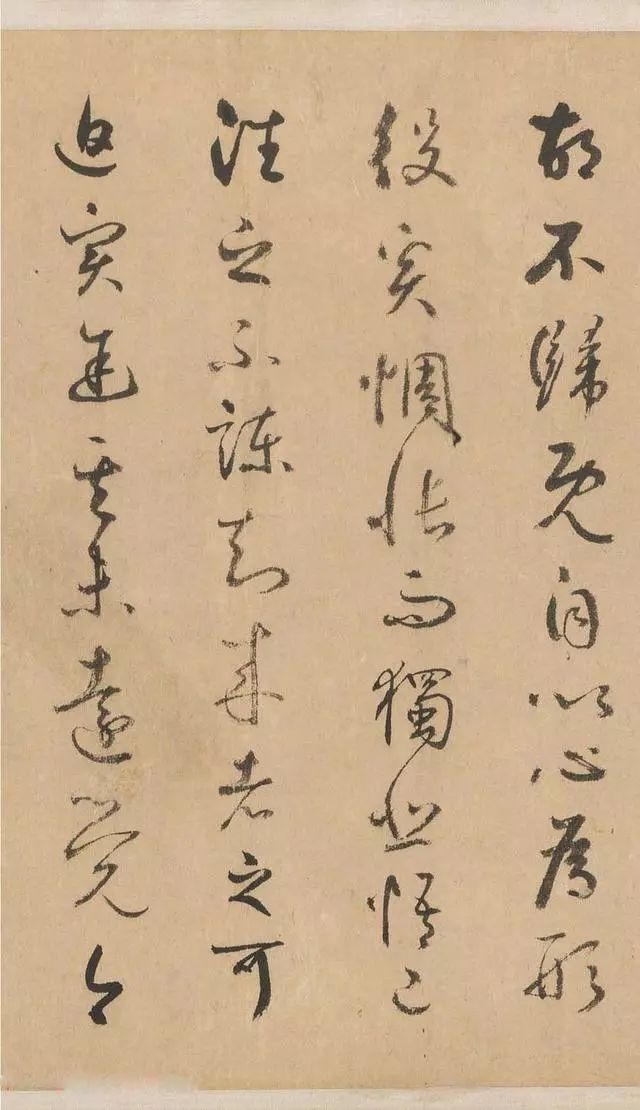 胡不歸既自以心為形
役奚惆悵而獨悲悟已
往之不諫知來者之可
追實迷其未遠覺今